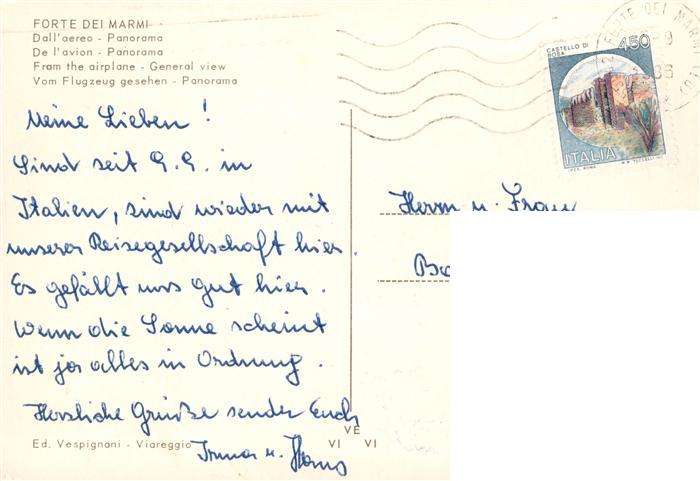 FORTE DEI MARMI
Dall'aereo - Panorama
De l'avion - Panorama
From the airplane - General view
Vom Flugzeug gesehen - Panorama
Meine Lieben!
Sind seit 9.9. in
Italien, sind wieder mit
unserer Reisegesellschaft hier.
Es gefällt uns gut hier.
Wenn die Sonne scheint
ist ja alles in Ordnung.
Herzliche Grüße senden Euch
Irma u. Hans
Ed. Vespignani - Viareggio
VE
VI VI
CASTELLO DI
ROSA
450
ITALIA
FORTE DEI MARMI
Herrn u. Frau